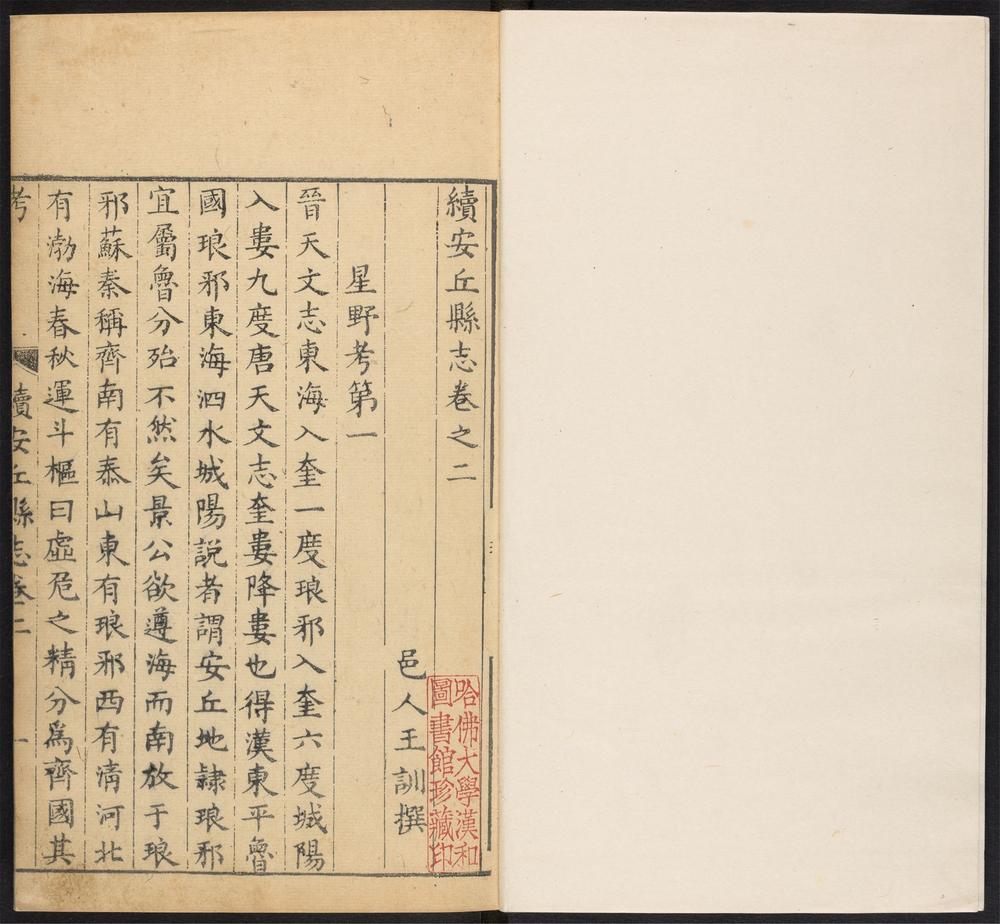 續安丘縣志卷之二
邑人王訓撰
星野考第一
晉天文志東海入奎一度琅邪入奎六度城陽
入婁九度唐天文志奎婁降婁也得漢東平魯
國琅邪東海泗水城陽説者謂安丘地隷琅邪
宜屬魯分殆不然矣景公欲遵海而南放于琅
邪蘇秦稱齊南有泰山東有琅邪西有清河北
有渤海春秋運斗樞曰虛危之精分為齊國其
考
續安丘縣志卷二
一
哈佛大學漢和
圖書館珍藏印